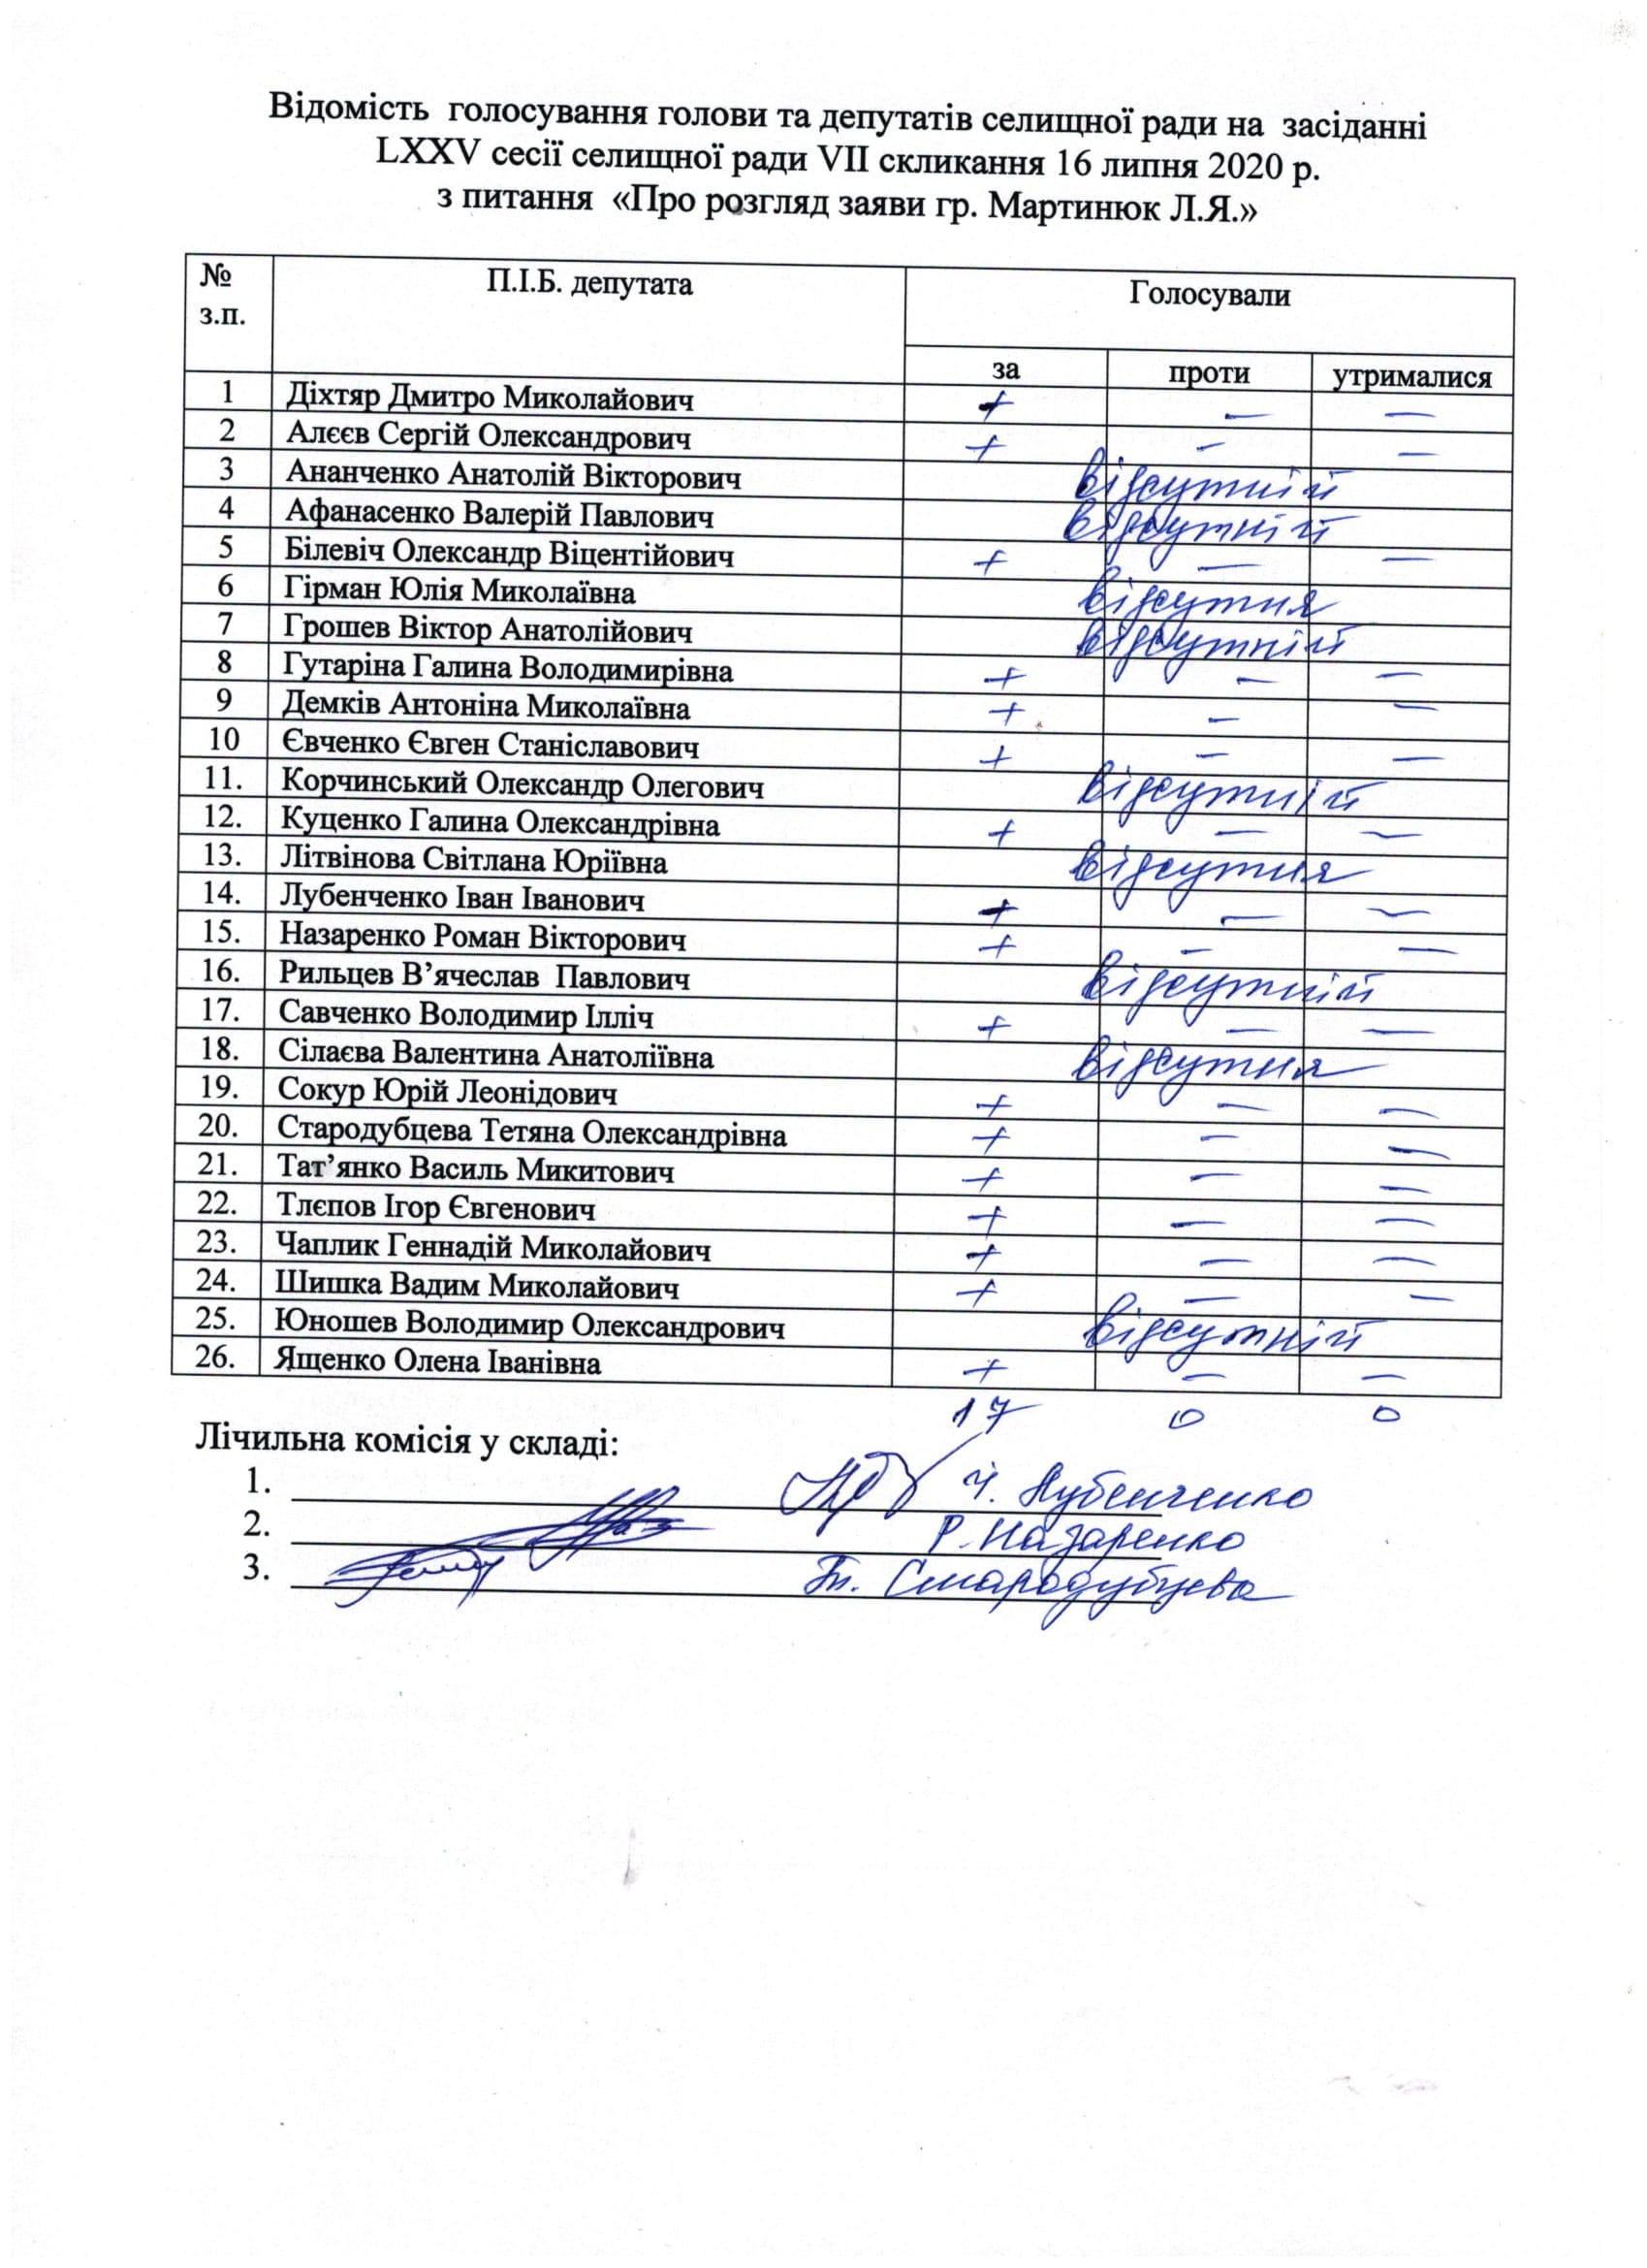 Відомість голосування голови та депутатів селищної ради на засіданні
LXXV сесії селищної ради VII скликання 16 липня 2020 р.
з питання «Про розгляд заяви гр. Мартинюк Л.Я.»
№ з.п. П.І.Б. депутата Голосували
за проти утрималися
1 Діхтяр Дмитро Миколайович + — —
2 Алєєв Сергій Олександрович + — —
3 Ананченко Анатолій Вікторович відсутній
4 Афанасенко Валерій Павлович відсутній
5 Білевіч Олександр Віцентійович + — —
6 Гірман Юлія Миколаївна відсутня
7 Грошев Віктор Анатолійович відсутній
8 Гутаріна Галина Володимирівна + — —
9 Демків Антоніна Миколаївна + — —
10 Євченко Євген Станіславович + — —
11. Корчинський Олександр Олегович відсутній
12. Куценко Галина Олександрівна + — —
13. Літвінова Світлана Юріївна відсутня
14. Лубенченко Іван Іванович + — —
15. Назаренко Роман Вікторович + — —
16. Рильцев В’ячеслав Павлович відсутній
17. Савченко Володимир Ілліч + — —
18. Сілаєва Валентина Анатоліївна відсутня
19. Сокур Юрій Леонідович + — —
20. Стародубцева Тетяна Олександрівна + — —
21. Тат’янко Василь Микитович + — —
22. Тлєпов Ігор Євгенович + — —
23. Чаплик Геннадій Миколайович + — —
24. Шишка Вадим Миколайович + — —
25. Юношев Володимир Олександрович відсутній
26. Ященко Олена Іванівна + — —
17 0 0
Лічильна комісія у складі:
1. І. Лубенченко
2. Р. Назаренко
3. Т. Стародубцева